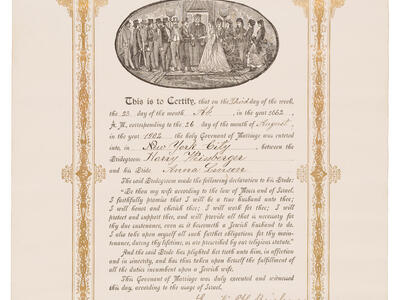 This is to Certify, that on the Third day of the week,
the 23 day of the month Ab, in the year 5662,
A. M., corresponding to the 26 day of the month of August,
in the year 1902 the holy Covenant of Marriage was entered
into, in New York City, between the
Bridegroom Harry Weisberger
and his Bride Anna Linson
The said Bridegroom made the following declaration to his Bride:
"Be thou my wife according to the law of Moses and of Israel.
I faithfully promise that I will be a true husband unto thee;
I will honor and cherish thee; I will work for thee; I will
protect and support thee, and will provide all that is necessary for
thy due sustenance, even as it beseemeth a Jewish husband to do.
I also take upon myself all such further obligations for thy main-
tenance, during thy lifetime, as are prescribed by our religious statute."
And the said Bride has plighted her troth unto him, in affection
and in sincerity, and has thus taken upon herself the fulfillment of
all the duties incumbent upon a Jewish wife.
This Covenant of Marriage was duly executed and witnessed
this day, according to the usage of Israel.